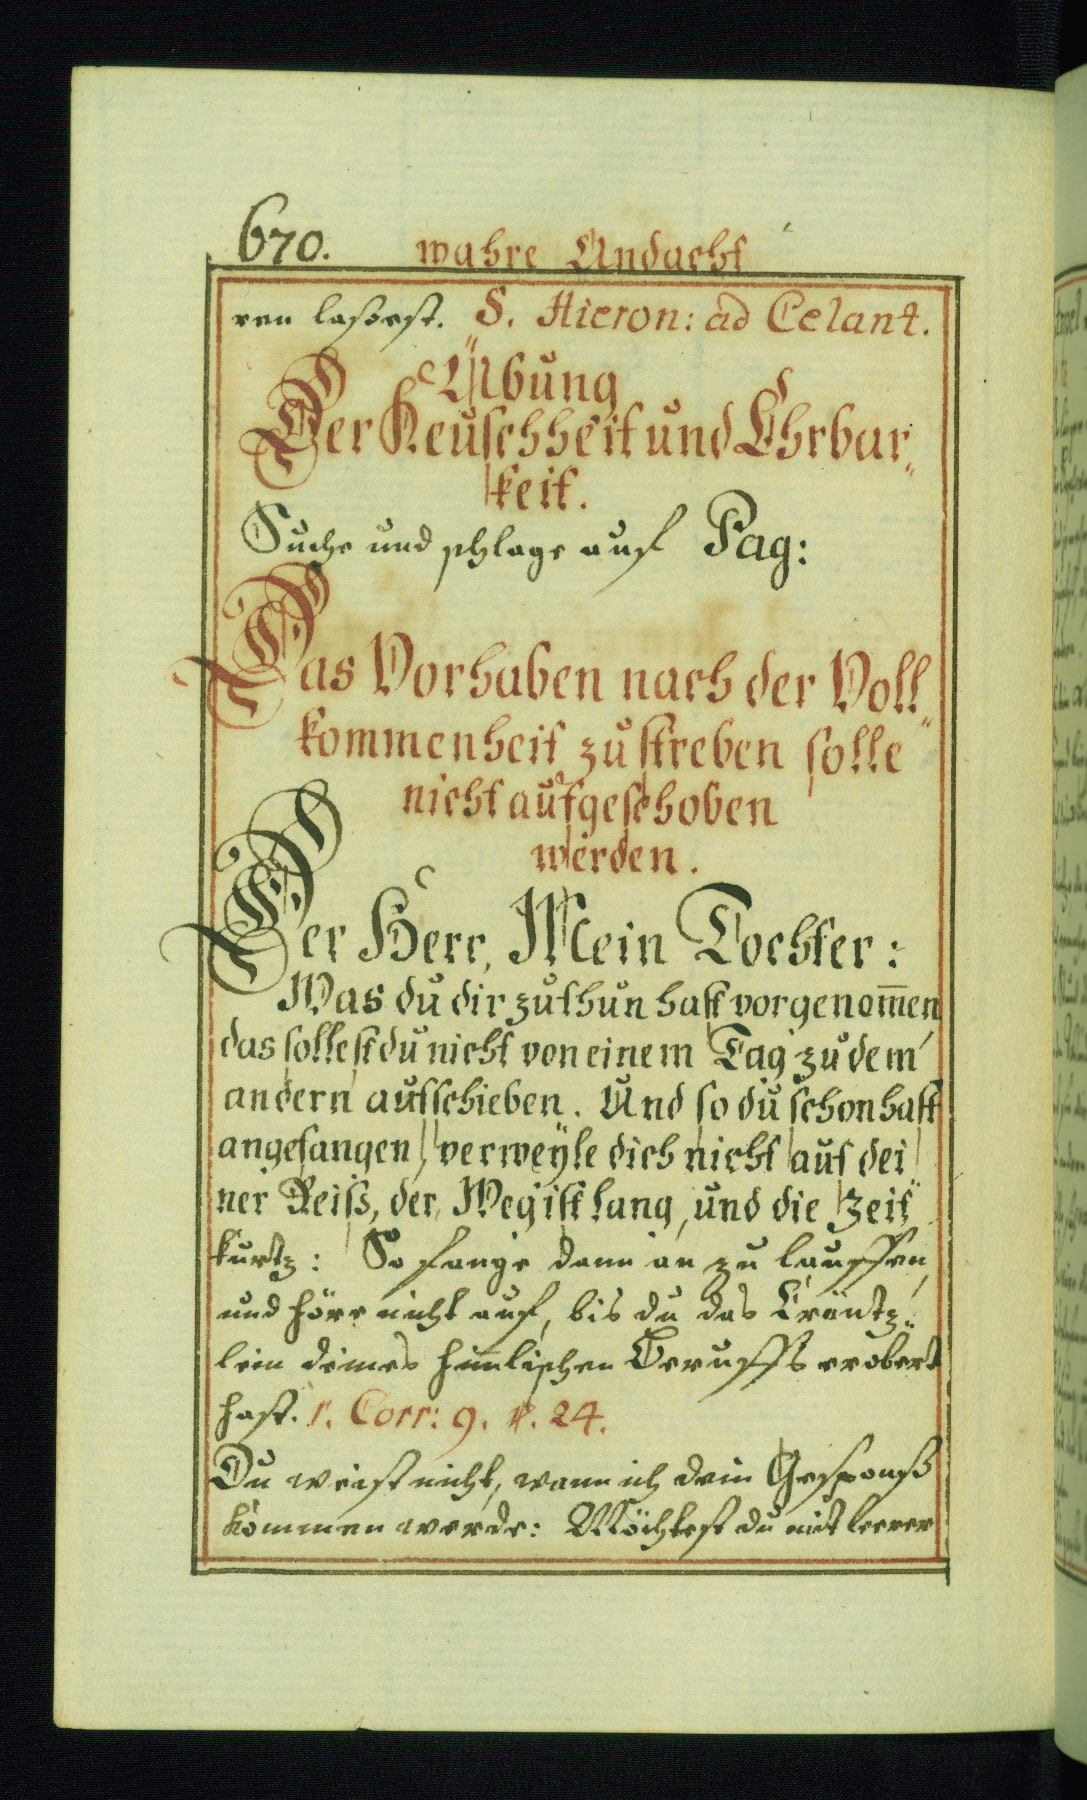 670. wahre Andacht
ren laßest. S. Hieron: ad Celant.
Übung
Der Keuschheit und Ehrbar„
keit.
Suche und schlage auf Pag:
Das Vorhaben nach der Voll„
kommenheit zu streben solle
nicht aufgeschoben
werden.
Der Herr, Mein Tochter:
Was du dir zu thun hast vorgenom̅en
das sollest du nicht von einem Tag zu dem
andern aufschieben. Und so du schon hast
angefangen, verweyle dich nicht auf dei„
ner Reiß, der Weg ist lang, und die Zeit
kurtz: So fange dann an zu lauffen,
und höre nicht auf, bis du das Cräntz„
lein deines him̅lischen Beruffs erobert
hast. 1. Corr: 9. v. 24.
Du weist nicht, wann ich dein Gesponß
kommen werde: Möchtest du mit leerer